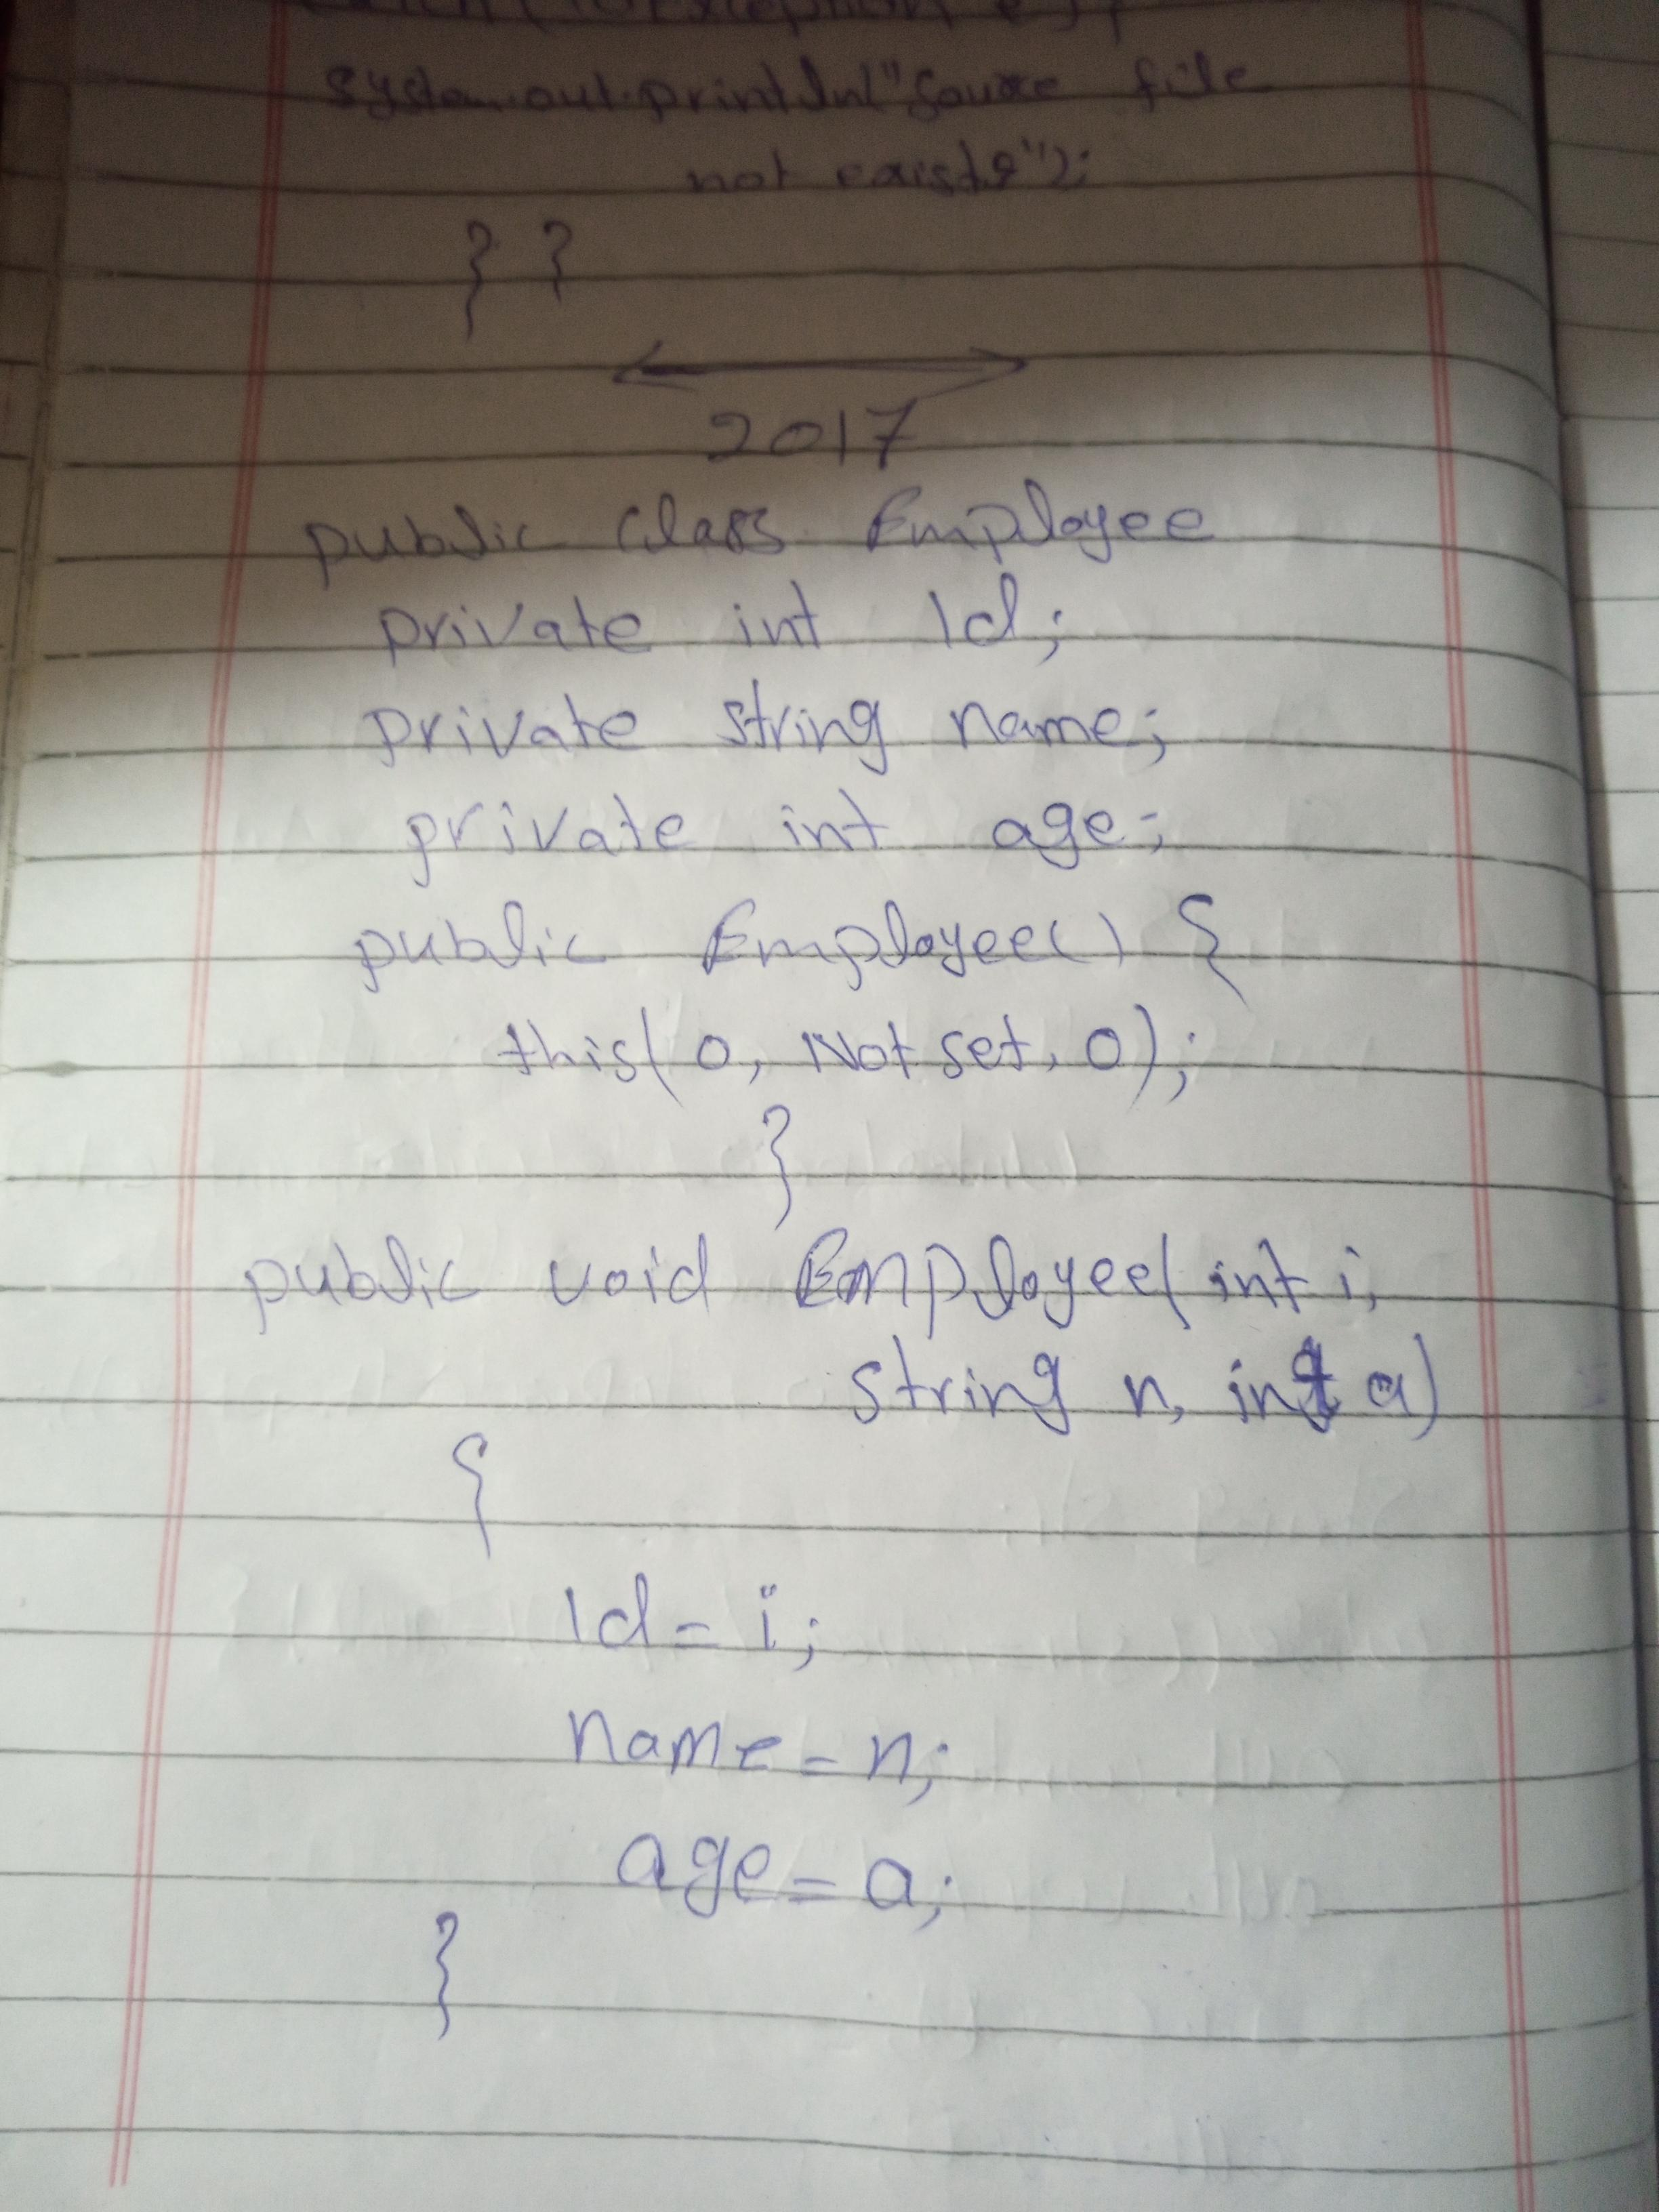 catch (IOException e) {
System.out.println("Source file
not exists");
} }
2017
public class Employee
private int Id;
private string name;
private int age;
public Employee() {
this( 0, Not set, 0);
}
public void Employee( int i,
string n, int a)
{
Id = i;
name = n;
age = a;
}